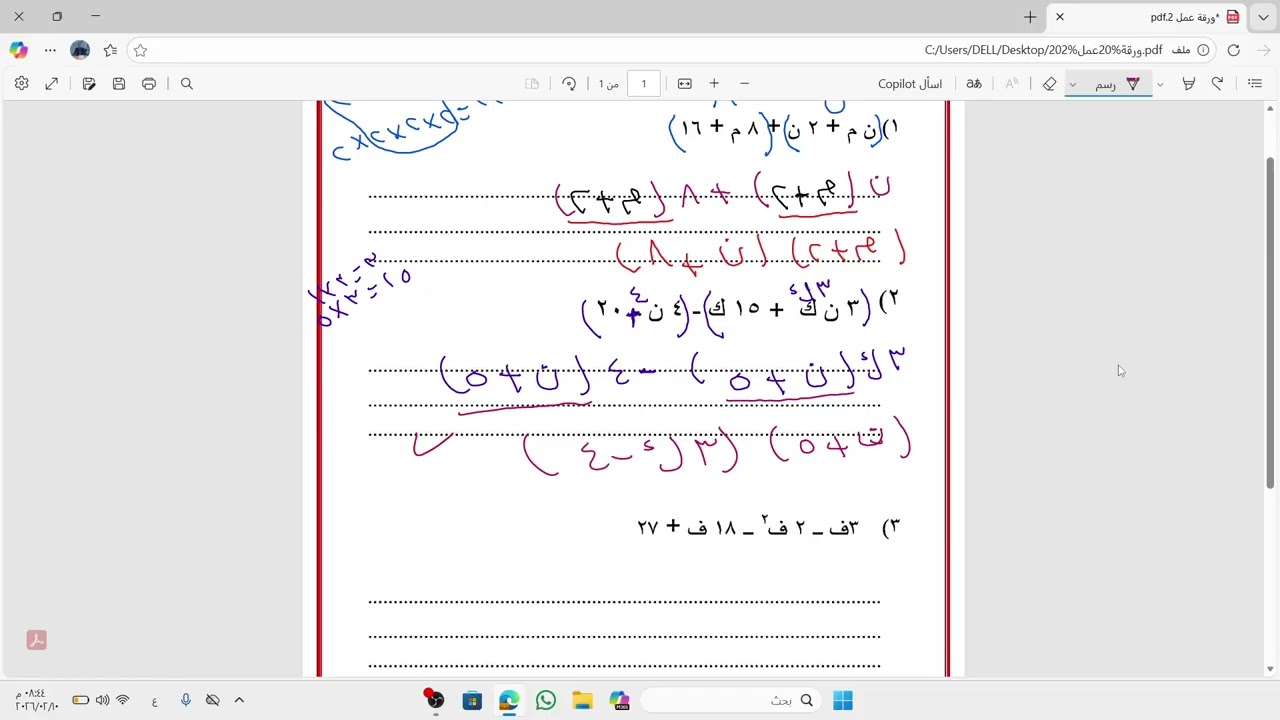 ورقة عمل 2.pdf*
ملف C:/Users/DELL/Desktop/202%عمل20%ورقة.pdf
1 من ١ اسأل Copilot رسم
١) (ن م + ٢ ن) + (٨ م + ١٦)
ن (م + ٢) + ٨ (م + ٢)
(م + ٢) (ن + ٨)
٥ × ٣ = ١٥
٢) (٣ ن ك + ١٥ ك) - (٤ ن + ٢٠)
٣ ك (ن + ٥) - ٤ (ن + ٥)
(ن + ٥) (٣ ك - ٤)
٣) ٣ف – ٢ ف٢ – ١٨ ف + ٢٧
بحث
٠٨:٤٤ م
٢٠٢٦/٠٢/١٠